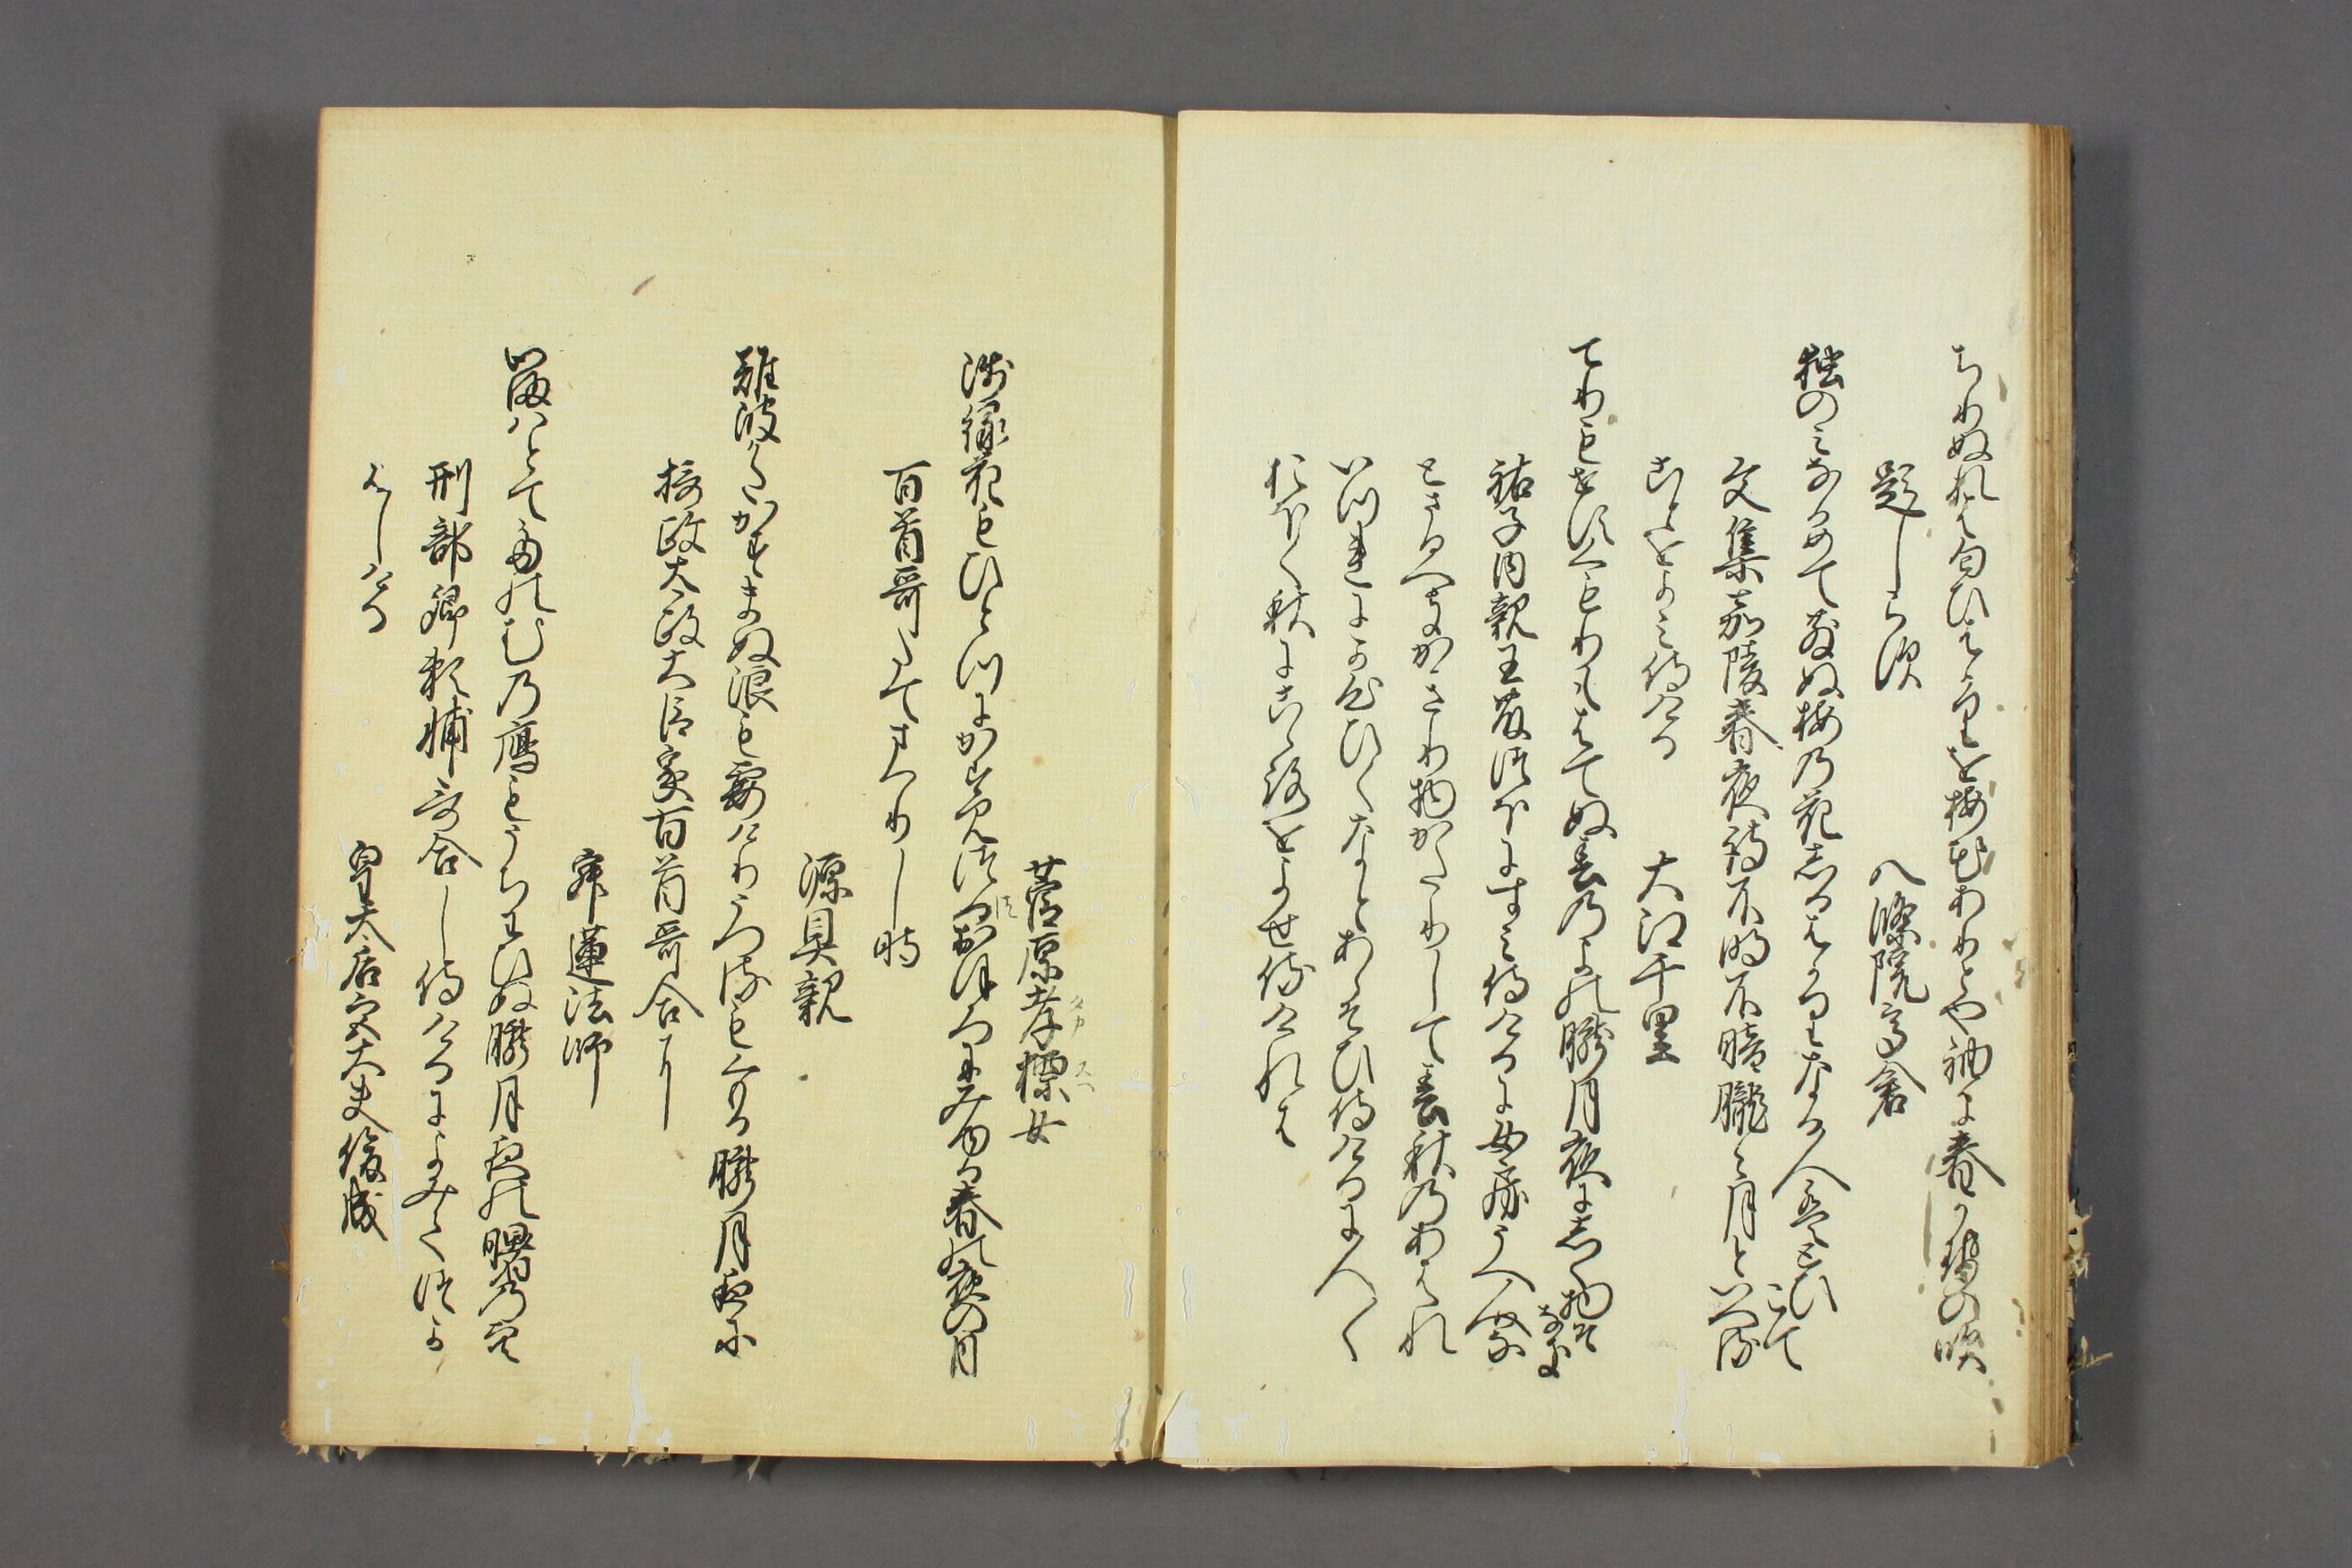 ちりぬれは匂ひはかりを梅花ありとや袖に春かせの吹
題しらす　八條院高倉
独のみなかめて散ぬ梅の花しるはかりなる人はとひこて
文集嘉陵春夜詩不明不暗朧々月といへる
ことをよみ侍ける　大江千里
てりもせすくもりもはてぬ春のよの朧月夜にしく物そなき
祐子内親王藤つほにすみ侍けるに女房うへ人なと
さるへきかきり物かたりして春秋のあはれ
いつれにか心ひくなとあらそひ侍けるに人〳〵
おほく秋に心をよせ侍けれは
菅原孝標女
タカ　スヱ
浅緑花もひとつにかすみつゝおほろにみゆる春の夜の月
百首哥たてまつりし時
源具親
難波かたかすまぬ浪も霞けりうつるもくもる朧月夜に
摂政太政大臣家百首哥合に
寂蓮法師
今はとてたのむの鴈もうちわひぬ朧月夜の曙の空
刑部卿頼輔哥合し侍けるによみてつか
はしける
皇太后宮大夫俊成